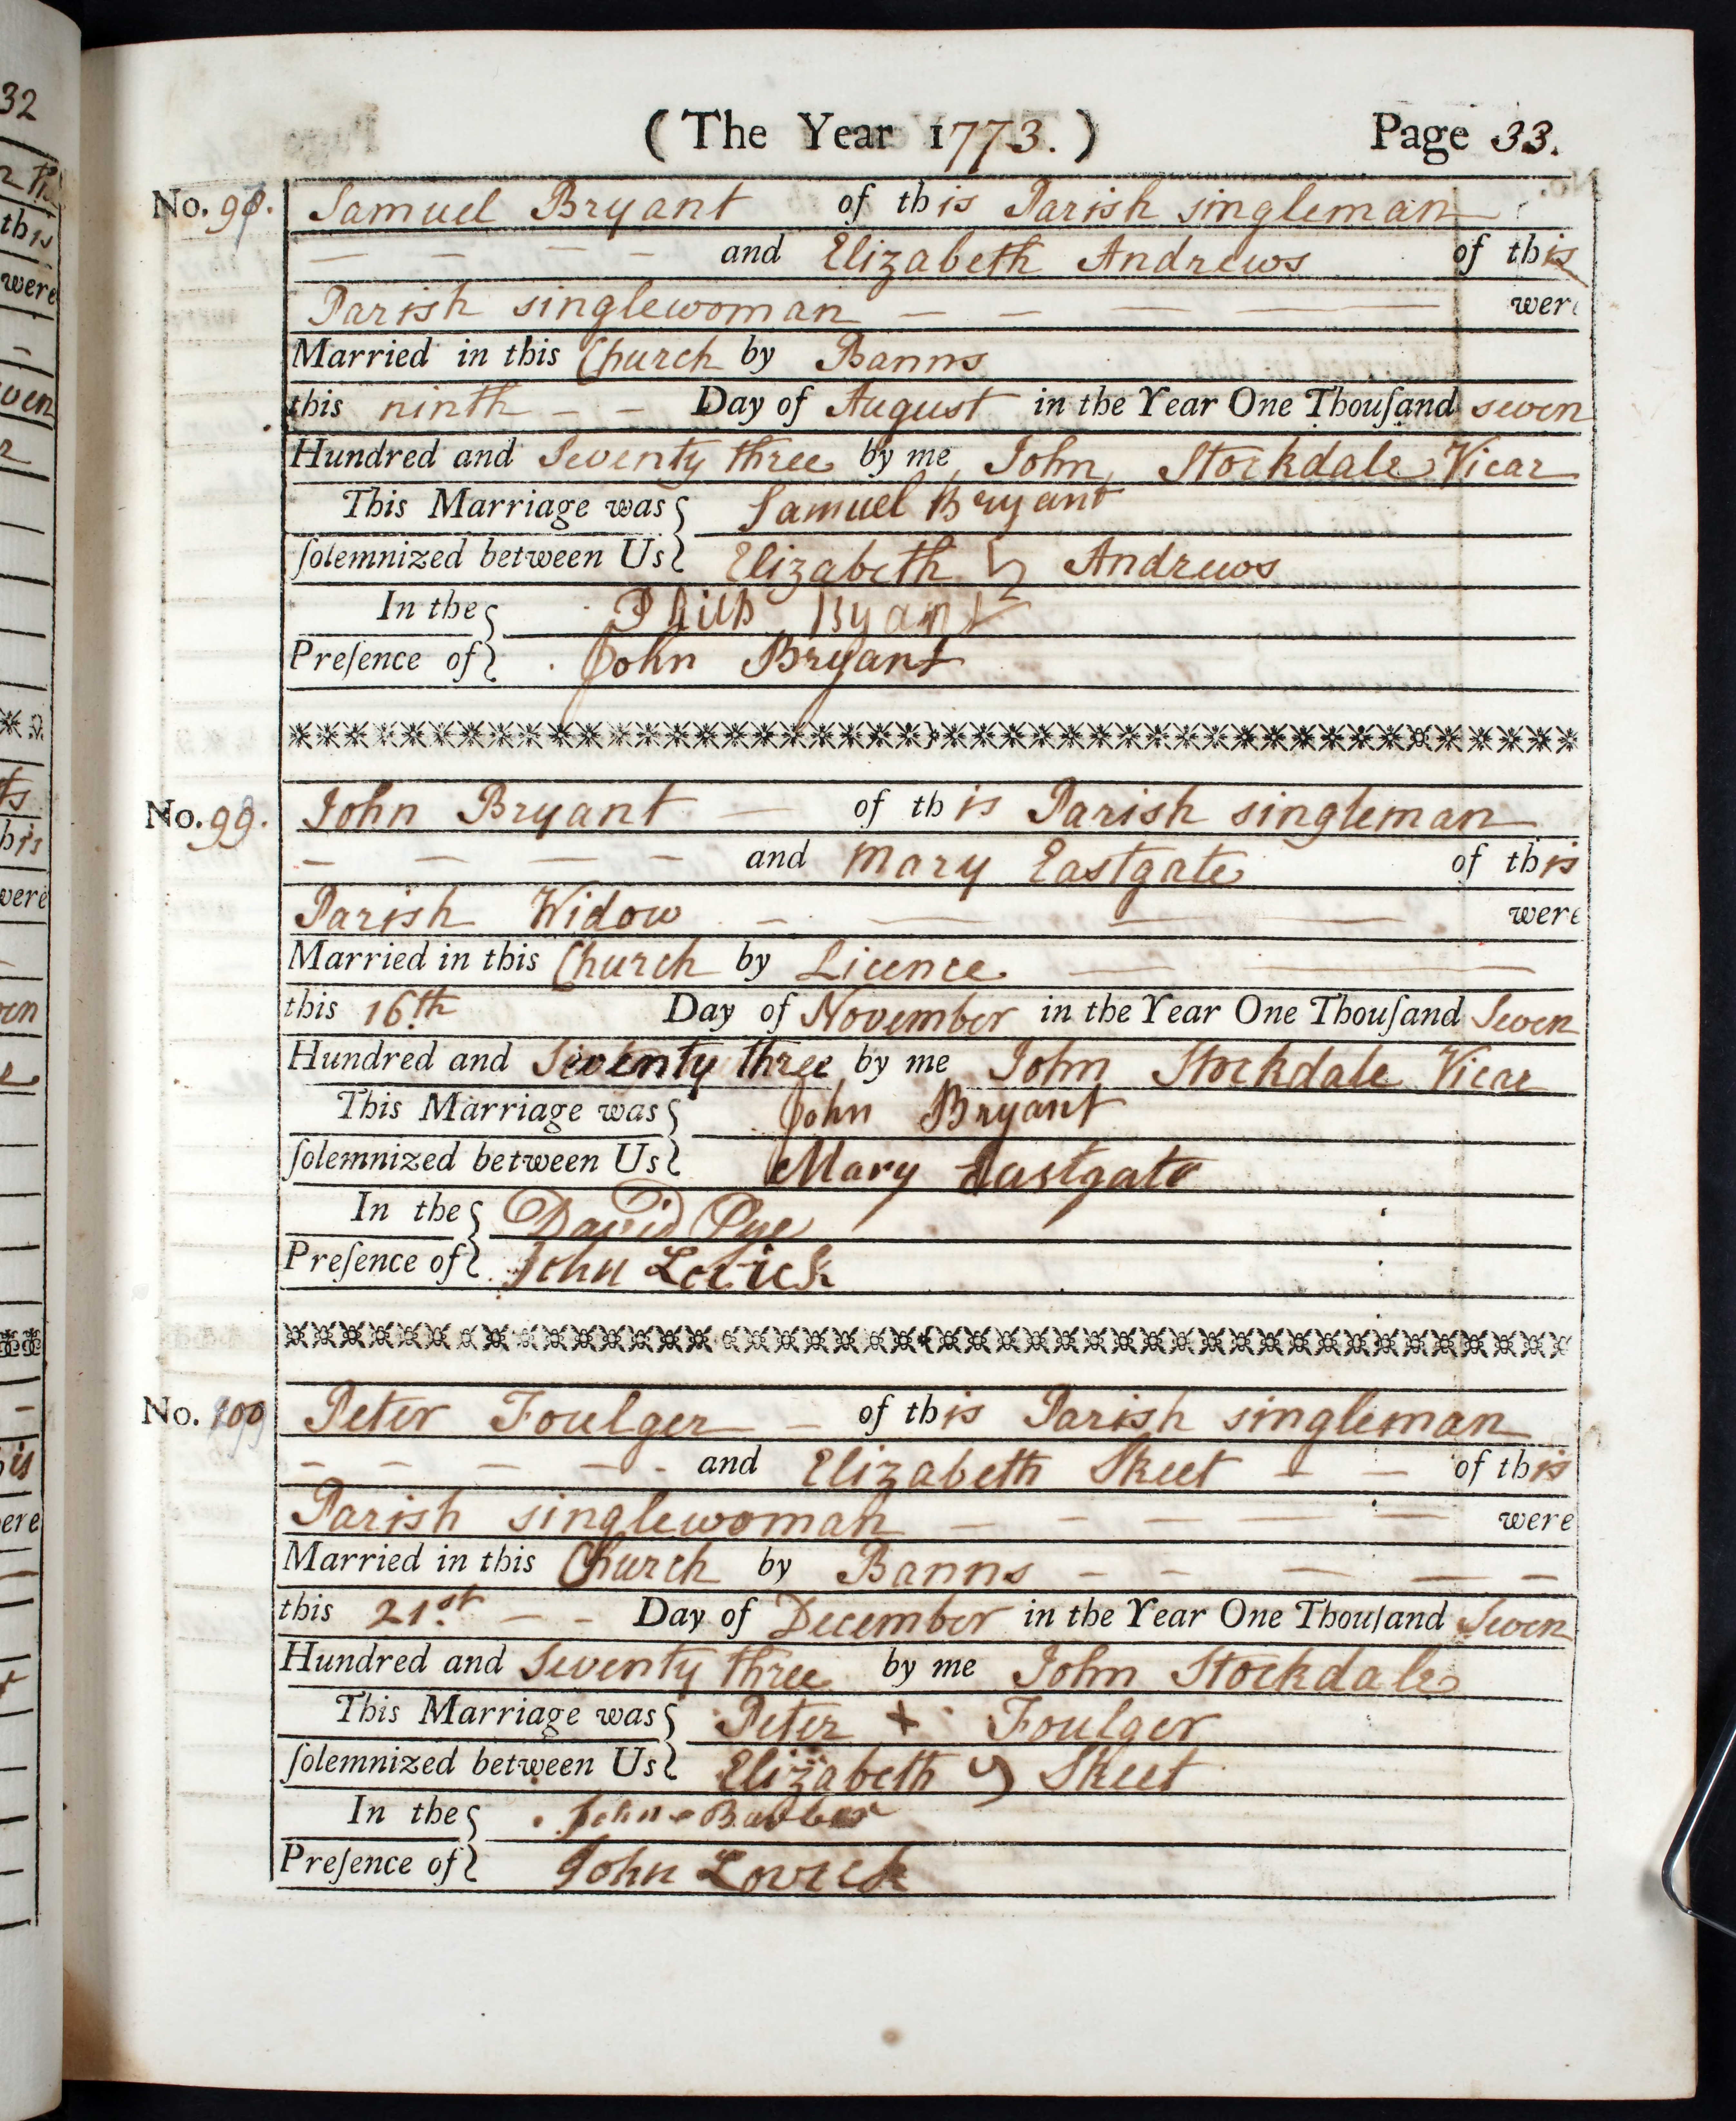 32
(The Year 1773.) Page 33.
No. Samuel Bryant of this Parish singleman
— — — — and Elizabeth Andrews of this
Parish singlewoman — — — — were
Married in this Church by Banns
this ninth — — Day of August in the Year One Thouſand seven
Hundred and Seventy three by me John Stockdale Vicar
This Marriage was Samuel Bryant
ſolemnized between Us Elizabeth Andrews
In the
Preſence of John Bryant
No. John Bryant — of this Parish singleman
— — — — and Mary Eastgate of this
Parish Widow — — — — were
Married in this Church by Licence — — —
this 16th Day of November in the Year One Thouſand Seven
Hundred and Seventy three by me John Stockdale Vicar
This Marriage was John Bryant
ſolemnized between Us Mary Eastgate
In the David Pye
Preſence of John Lovick
No. Peter Foulger — of this Parish singleman
— — — — - and Elizabeth Skeet — — of this
Parish singlewoman — — — — — were
Married in this Church by Banns — — — — —
this 21st — — Day of December in the Year One Thouſand Seven
Hundred and Seventy three by me John Stockdale
This Marriage was Peter + Foulger
ſolemnized between Us Elizabeth Skeet
In the John Barber
Preſence of John Lovick